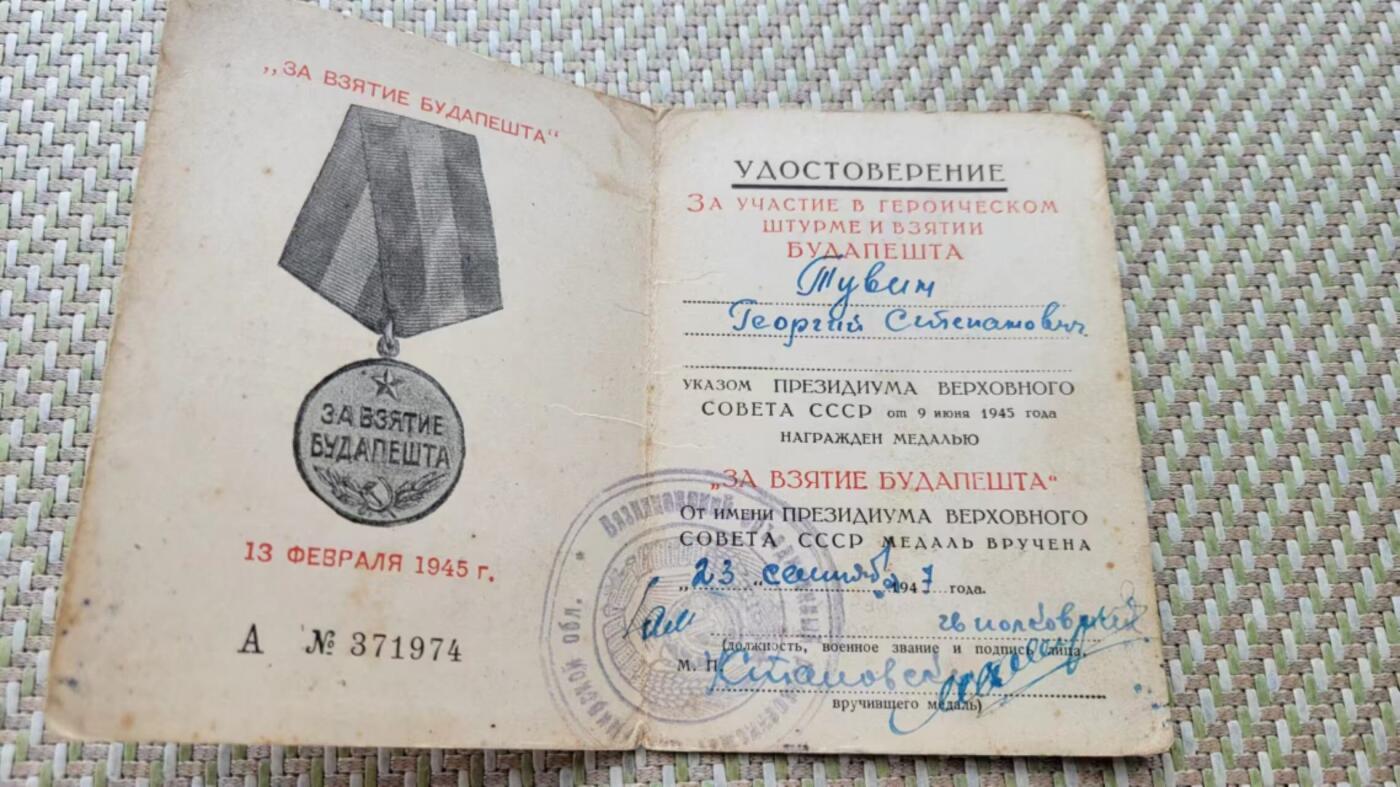 „ЗА ВЗЯТИЕ БУДАПЕШТА“
ЗА ВЗЯТИЕ
БУДАПЕШТА
13 ФЕВРАЛЯ 1945 г.
А № 371974
УДОСТОВЕРЕНИЕ
ЗА УЧАСТИЕ В ГЕРОИЧЕСКОМ
ШТУРМЕ И ВЗЯТИИ
БУДАПЕШТА
Тувин
Георгий Степанович
УКАЗОМ ПРЕЗИДИУМА ВЕРХОВНОГО
СОВЕТА СССР от 9 июня 1945 года
НАГРАЖДЕН МЕДАЛЬЮ
„ЗА ВЗЯТИЕ БУДАПЕШТА“
ОТ ИМЕНИ ПРЕЗИДИУМА ВЕРХОВНОГО
СОВЕТА СССР МЕДАЛЬ ВРУЧЕНА
„23“ сентября 1947 года.
гв полковник
(должность, военное звание и подпись лица,
М. П.
вручившего медаль)
Вязниковский
обл.